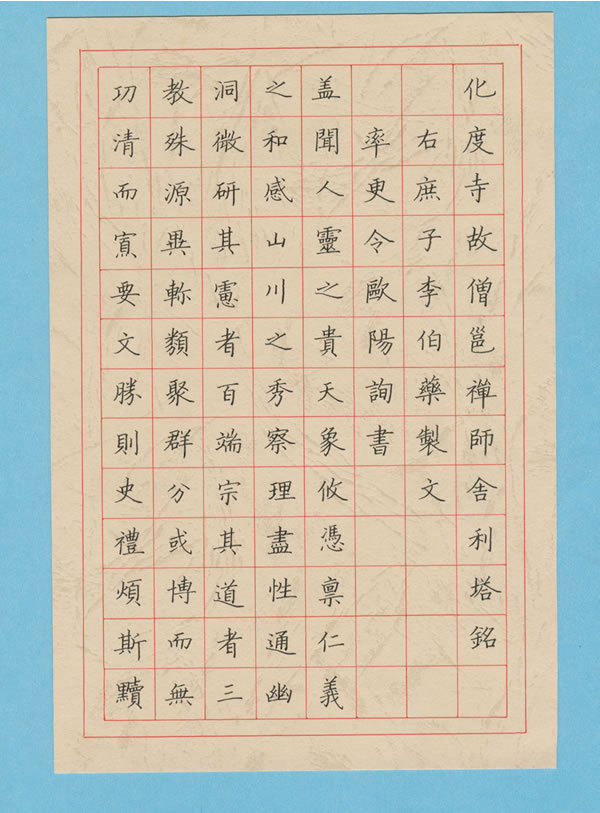 化度寺故僧邕禪師舍利塔銘
右庶子李伯藥製文
率更令歐陽詢書
盖聞人靈之貴天象攸憑禀仁義
之和感山川之秀察理盡性通幽
洞微研其慮者百端宗其道者三
教殊源異軫類聚群分或博而無
功清而寡要文勝則史禮煩斯黷